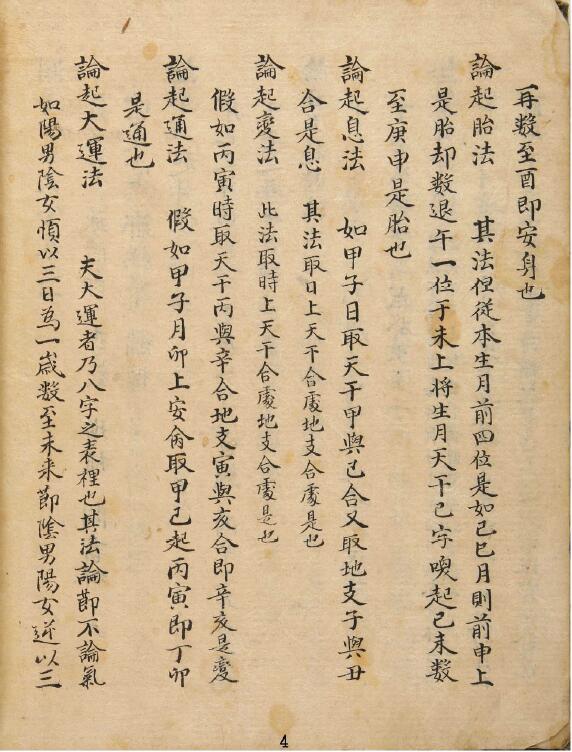 再数至酉即安身也
論起胎法　其法但從本生月前四位是如己巳月則前申上
是胎却数退午一位于未上将生月天干己字喚起己未数
至庚申是胎也
論起息法　如甲子日取天干甲與己合又取地支子與丑
合是息　其法取日上天干合處地支合處是也
論起変法　此法取時上天干合處地支合處是也
假如丙寅時取天干丙與辛合地支寅與亥合即辛亥是変
論起通法　假如甲子月卯上安命取甲己起丙寅即丁卯
是通也
論起大運法　夫大運者乃八字之表裡也其法論節不論氣
如陽男陰女順以三日為一歲数至未来節陰男陽女逆以三
4